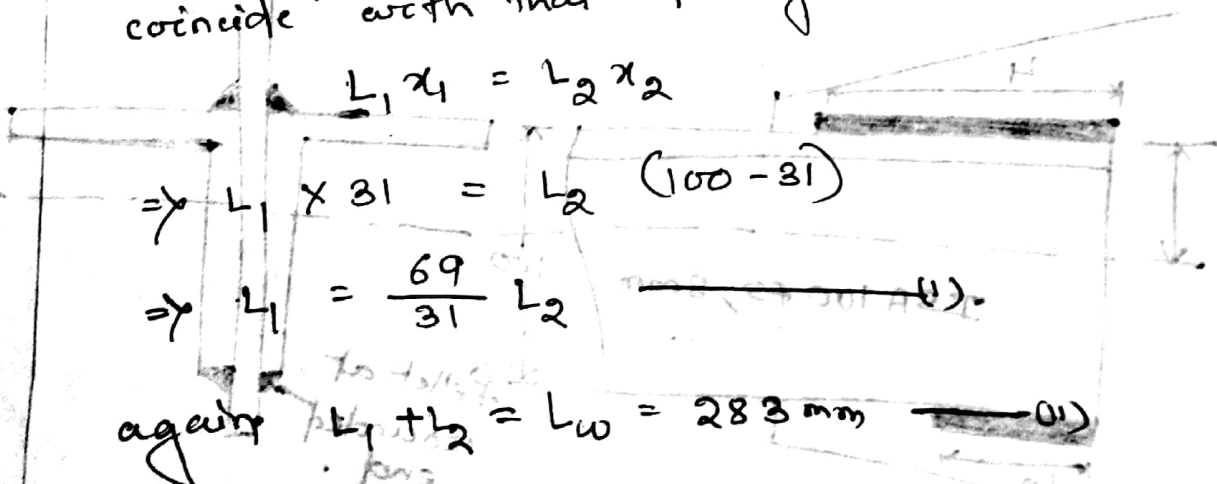 coincide with that
L₁ x₁ = L₂ x₂
=> L₁ × 31 = L₂ (100 - 31)
=> L₁ = 69/31 L₂ ——— (i).
again L₁ + L₂ = Lw = 283 mm ——— (ii)